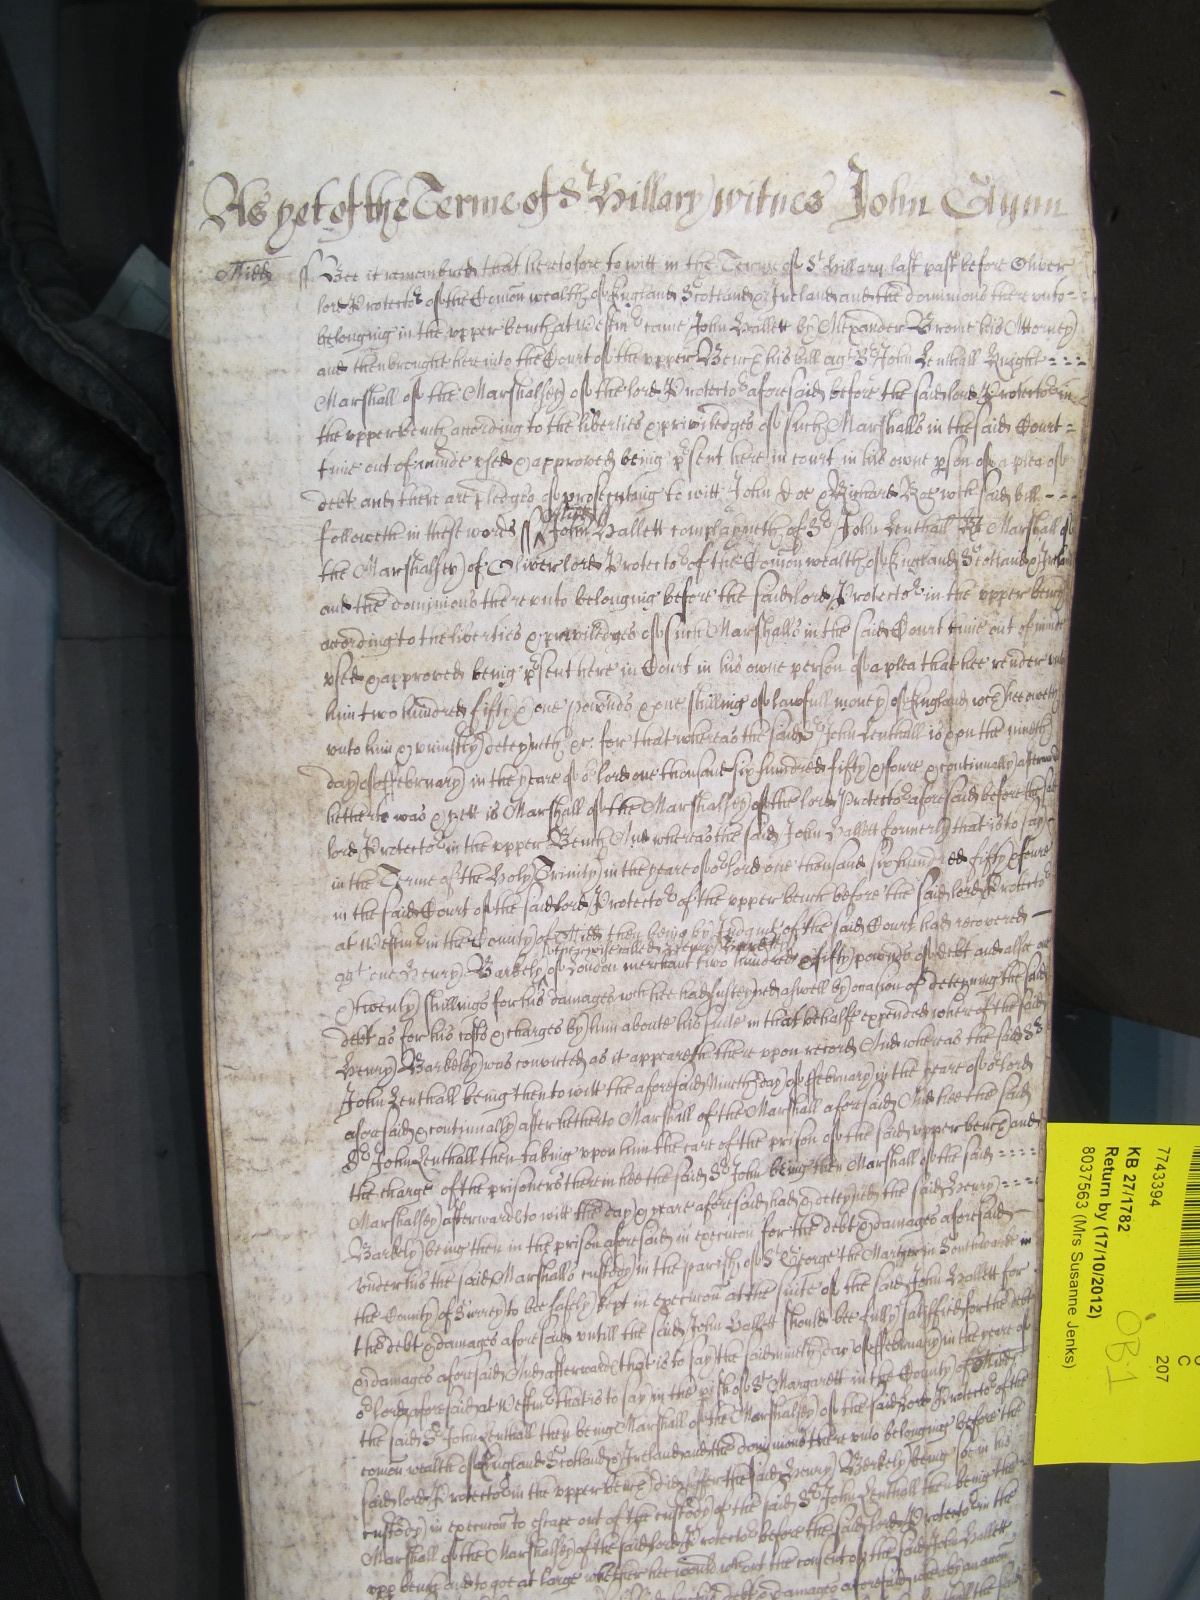 As yet of the Terme of St Hillary witnes John Glynn
Midds ss Bee it remembred that heretofore to witt in the Terme of St Hillary last past before Oliver
lord Protector of the Comon wealth of England Scotland & Ireland and the dominions there vnto
belonging in the vpper bench at Westmr came John Hallett by Alexander Brome his Attorney
and then brought here into the Court of the vpper Bench his bill agt Sr John Lenthall Knight
Marshall of the Marshalsey of the lord Protector aforesaid before the said lord Protector in
the vpper bench according to the liberties & priviledges of such Marshalls in the said Court
time out of minde vsed & approoved being psent here in court in his owne pson of a plea of
debt and there are pledges of prosecuting to witt John Doe & Richard Roe wch said bill
followeth in these words ss Midds John Hallett complayneth of Sr John Lenthall Kt Marshall of
the Marshalsey of Oliver lord Protector of the Comon wealth of England Scotland & Ireland
and the dominions there vnto belonging before the said lord Protector in the vpper bench
according to the liberties & priviledges of such Marshalls in the said Court time out of minde
vsed & approoved being psent here in Court in his owne person of a plea that hee render vnto
him two hundred fifty & one pownds & one shilling of lawfull money of England wch hee oweth
vnto him & vniustly deteyneth &c for that whereas the said Sr John Lenthall vpon the nineth
day of February in the yeare of or lord one thousand six hundred fifty & foure & continually afterward
hetherto was & yett is Marshall of the Marshalsey of the lord Protector aforesaid before the said
lord Protector in the vpper Bench And whereas the said John Hallett formerly that is to say
in the Terme of the Holy Trinity in the yeare of or lord one thousand six hundred fifty & foure
in the said Court of the said lord Protector of the vpper bench before the said lord Protector
at Westmr in the County of Midds then being by Iudgmt of the said Court had recovered
agt one Henry Barkely otherwise called Henry of London merchant two hundred & fifty pownds of debt and alsoe one
& twenty shillings for his damages wch hee had susteyned aswell by occasion of deteyning the said
debt as for his costs & charges by him aboute his suite in that behalfe expended whereof the said
Henry Barkeley was convicted as it appeareth there vpon record And whereas the said Sr
John Lenthall being then to witt the aforesaid Nineth day of February in the yeare of or lord
aforesaid & continually after hetherto Marshall of the Marshall aforesaid And hee the said
Sr John Lenthall then taking vpon him the care of the prison of the said vpper bench and
the charge of the prisoners therein hee the said Sr John being then Marshall of the said
Marshalsey afterwards to witt the day & yeare aforesaid had & deteyned the said Henry
Barkely being then in the prison aforesaid in execucon for the debt & damages aforesaid
vnder his the said Marshalls custody in the parish of St George the Martyr in Southwarke in
the County of Surrey to bee safely kept in execucon at the suite of the said John Hallett for
the debt & damages aforesaid vntill the said John Hallett should bee fully satisfied for the debt
& damages aforesaid And afterward that is to say the said ninety day of February in the yeare of
or lord aforesaid at Westmr that is to say in the pish of St Margarett in the County of Midds
the said Sr John Lenthall then being Marshall of the Marshalsey of the said lord Protector of the
comon wealth of England Scotland & Ireland and the dominions there vnto belonging before the
said lord Protector in the vpper bench did suffer the said Henry Berkely being soe in his
custody in execucon to escape out of the custody of the said Sr John Lenthall then being the
Marshall of the Marshalsey of the said lord Protector before the said lord Protector in the
vpp bench and to goe at large whether hee would without the consent of the said John Hallett
debt & damages aforesaid whereby an accon
7743394
KB 27/1782
Return by (17/10/2012)
8037563 (Mrs Susanne Jenks)
C
207
OB1